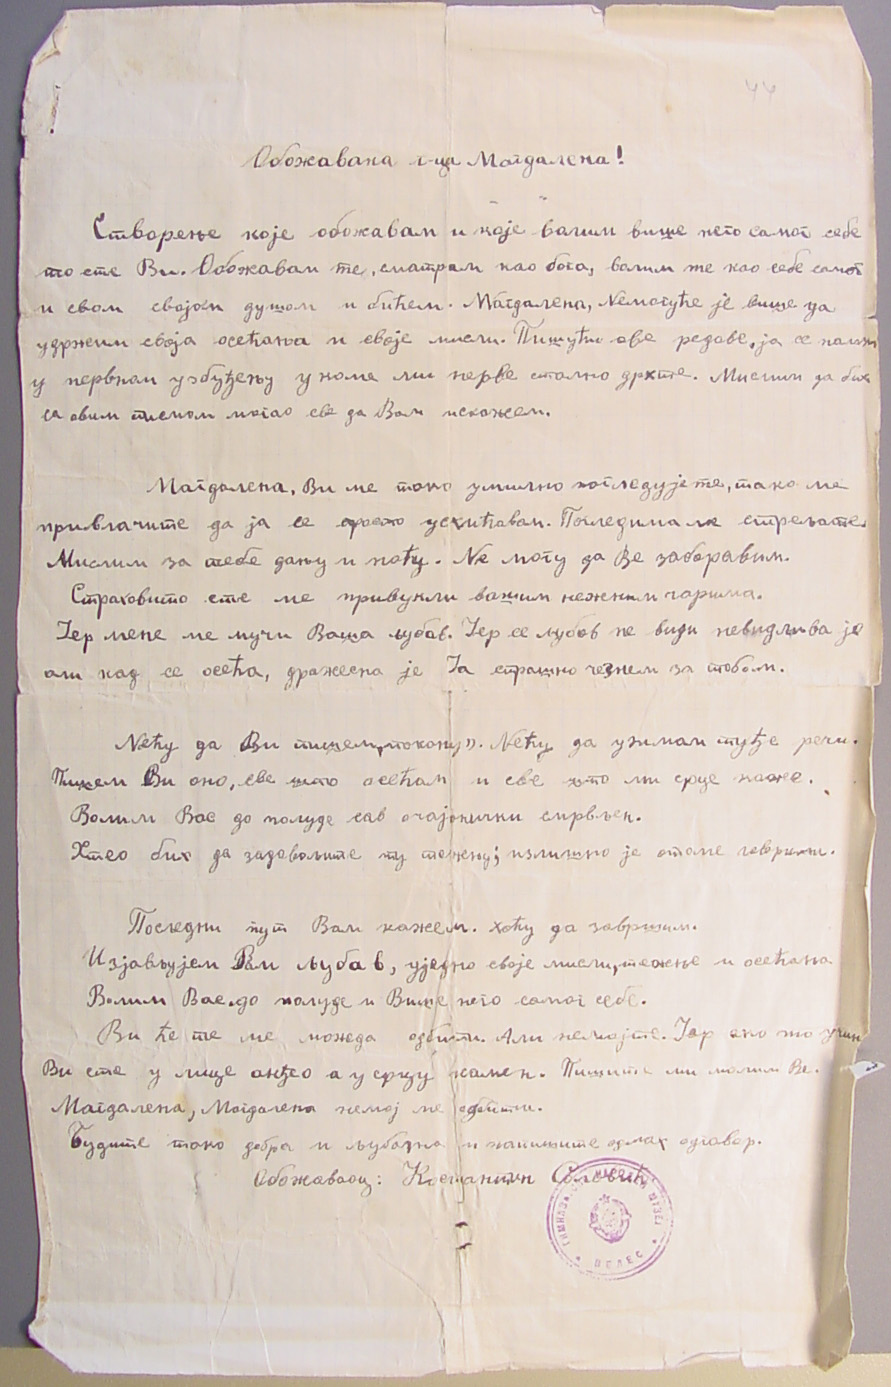 44
Обожавана г-ца Магдалена!
Створење које обожавам и које валим више него самог себе
то сте Ви. Обожавам те, сматрам као бога, валим те као себе самог
и свом својом душом и бићем. Магдалена, Nемогуће је више да
удржим своја осећања и своје мисли. Пишући ове редове, ја се
у нервном узбуђењу у коме ми нерве стално дрхте. Мислим да бих
са овим писмом могао све да Вам искажем.
Магдалена, Ви ме тако умилно погледујете, тако ме
привлачите да ја се просто усхићавам. Погледима ме стрељате.
Мислим за тебе дању и ноћу. Nе могу да Ве заборавим.
Страховито сте ме привукли вашим нежним чарима.
Јер мене ме мучи Ваша љубав. Јер се љубов не види невидљива је
али кад се осећа, дражесна је Ја страшно чезнем за тобом.
Nећу да Ви пишем „покопу". Nећу да узимам туђе речи.
Пишем Ви оно, све што осећам и све што ми срце каже.
Волим Вас до полуде сав очајонички смрвљен.
Хтео бих да задовољите ту тежењу; излишно је отоме говорити.
Последни пут Вам кажем. Хоћу да завршим.
Изјављујем Вам љубав, уједно своје мисли, тежње и осећања
Волим Вас до полуде и Више него самог себе.
Ви ће те ме можеда одбити. Али немојте. Јер ако то
Ви сте у лице анђео а у срцу камен. Пишите ми молим Ве.
Магдалена, Магдалена немој ме одбити.
Будите тако добра и љубазна и напишите одмах одговор.
Обожаваоц: Костантин
ГИМНАЗИЈА
ВЕЛЕС